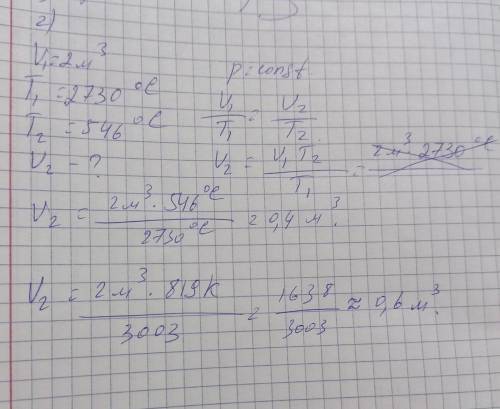 2)
V₁=2м³
T₁=2730°C
T₂=546°C
V₂ - ?
p=const
V₁/T₁ = V₂/T₂
V₂ = V₁T₂/T₁ = 2м³ 2730°C
V₂ = 2м³·546°C/2730°C = 0,4 м³.
V₂ = 2м³·819K/3003 = 1638/3003 ≈ 0,6м³.